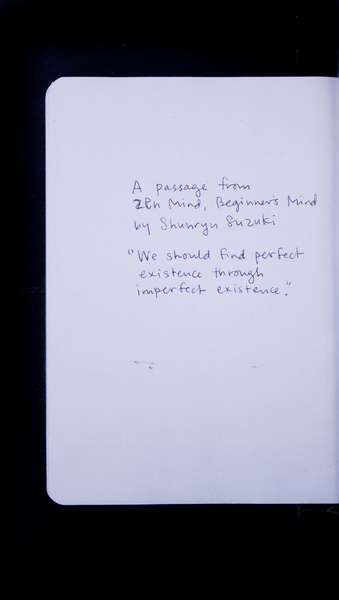 A passage from
Zen Mind, Beginner's Mind
by Shunryu Suzuki
"We should find perfect
existence through
imperfect existence."